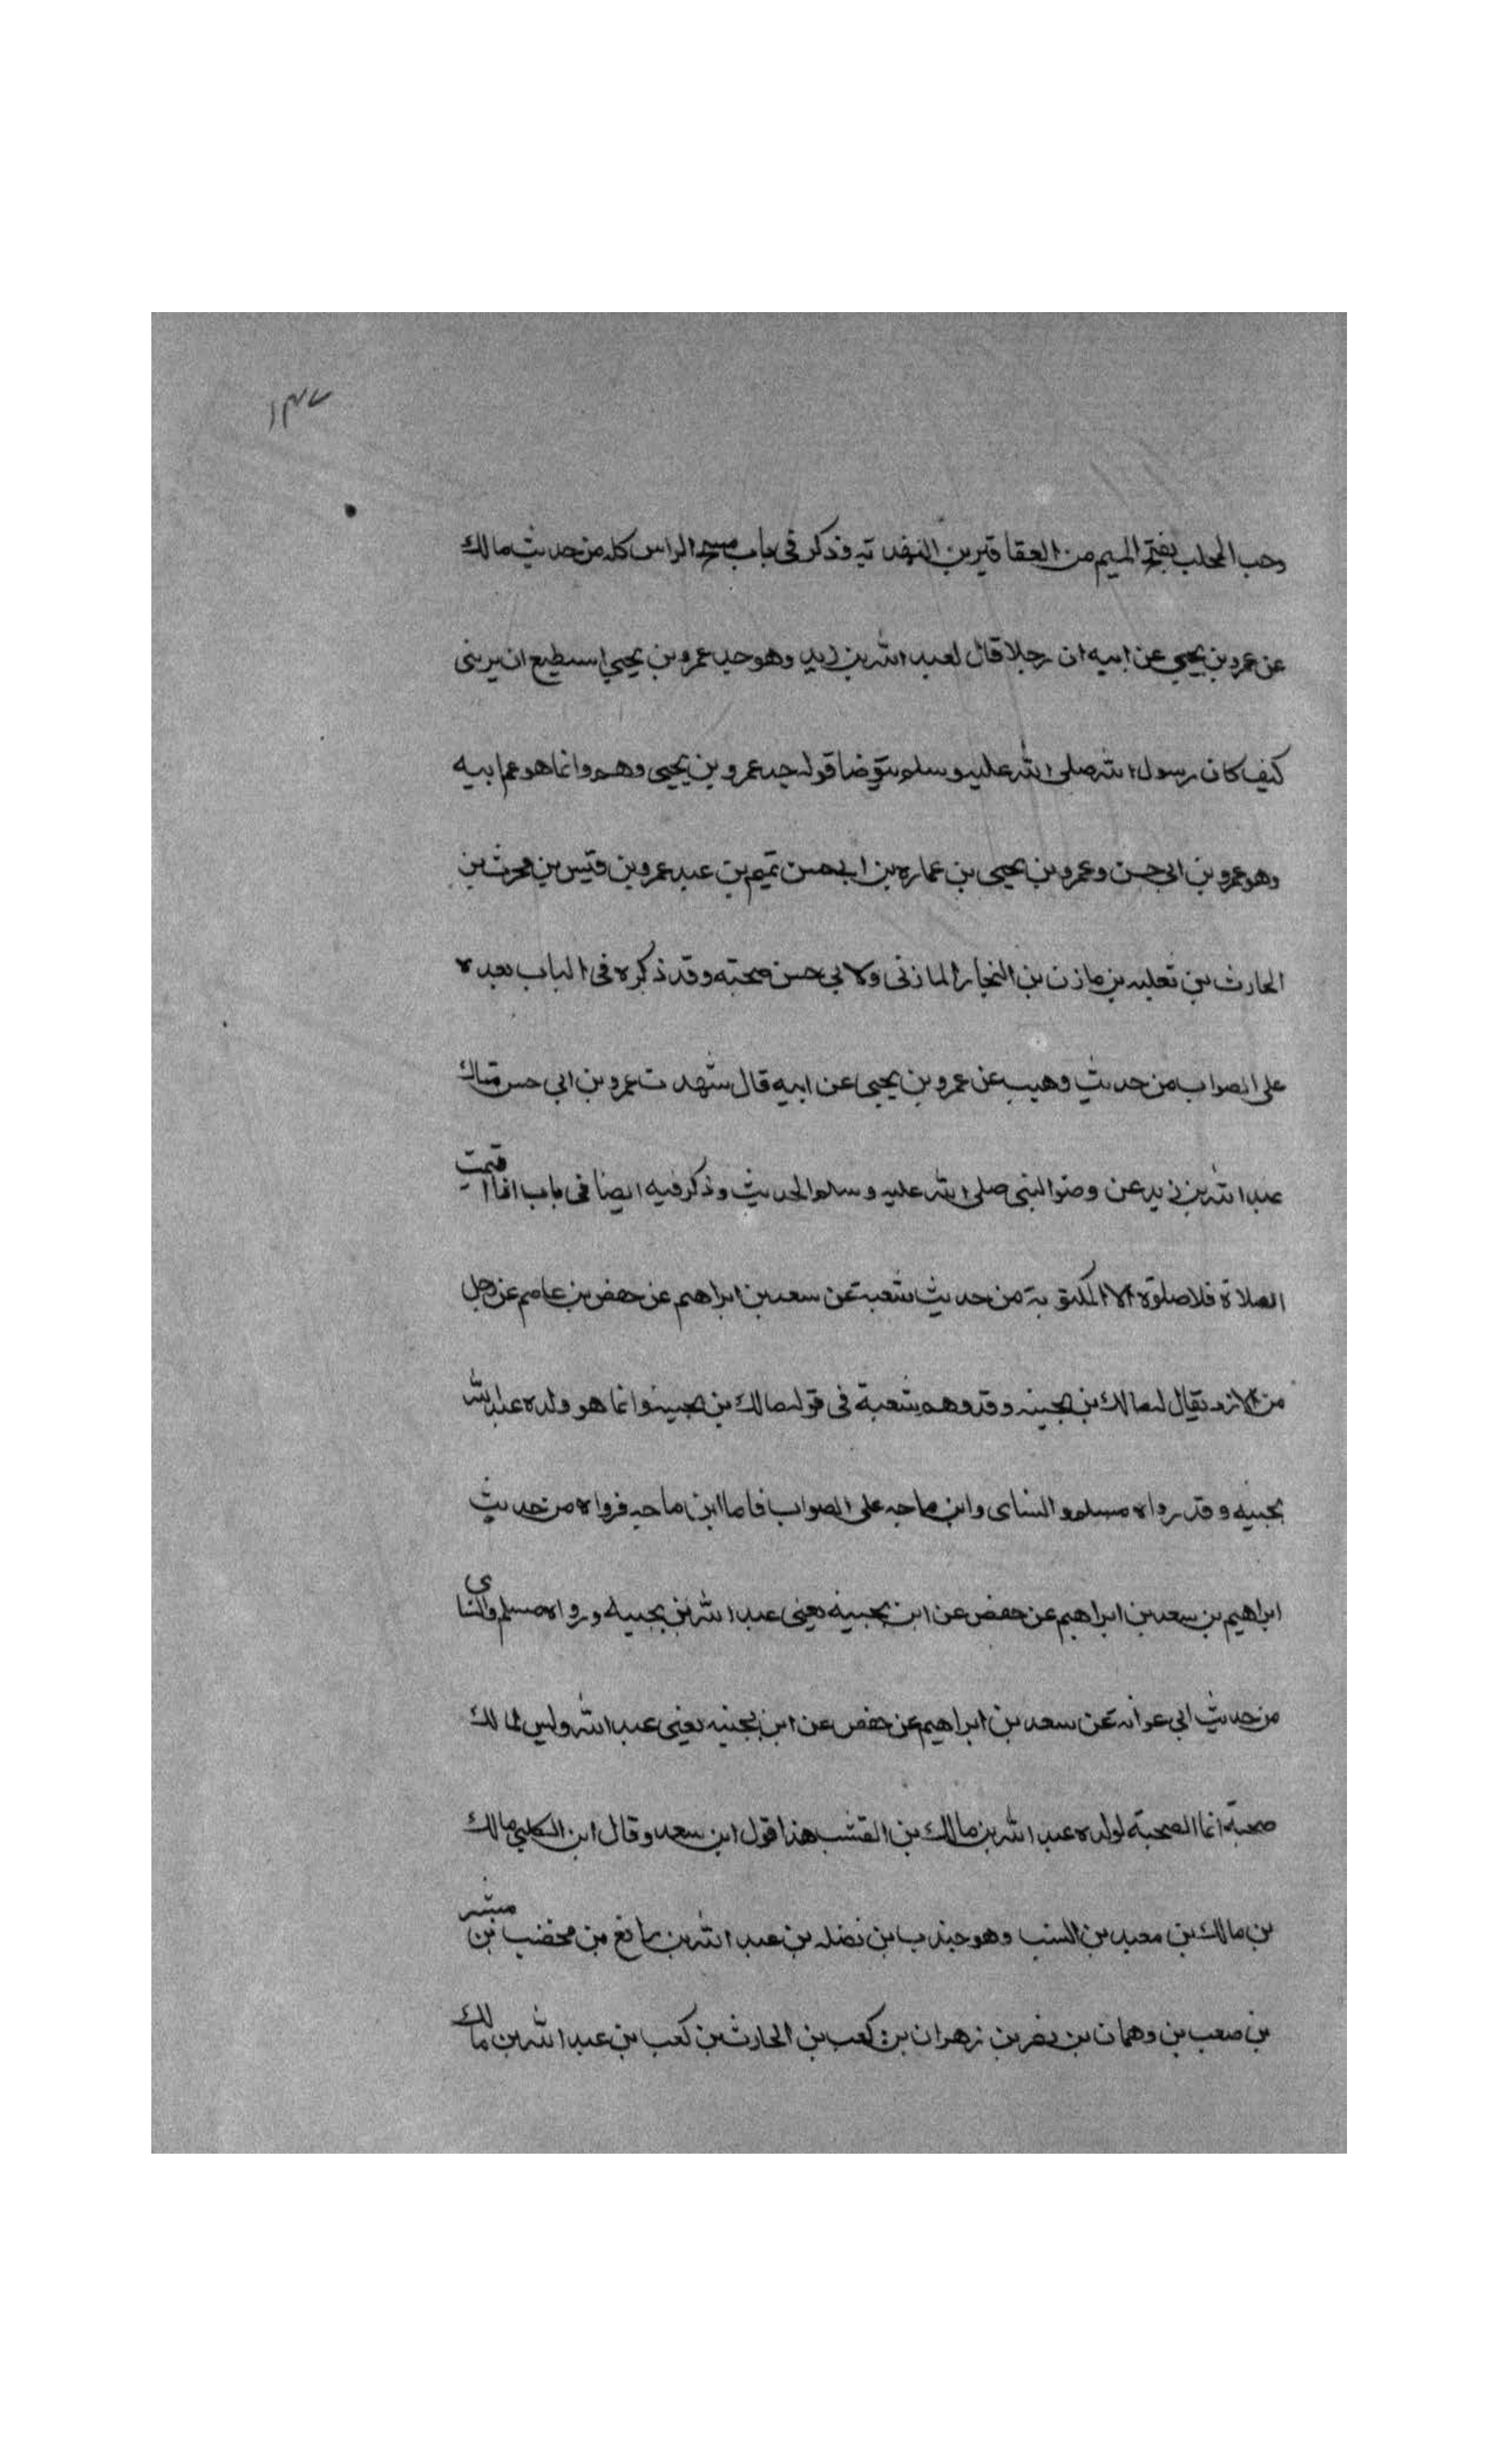 ١٣٧
وحب المحلب بفتح الميم من العقاقير بن الهندية وذكر في باب مسح الراس كله من حديث مالك
عن عمرو بن يحيى عن ابيه ان رجلا قال لعبد الله بن زيد وهو جد عمرو بن يحيى استطيع ان يريني
كيف كان رسول الله صلى الله عليه وسلم يتوضا قوله جد عمرو بن يحيى وهم وانما هو عم ابيه
وهو عمرو بن ابي حسن وعمرو بن يحيى بن عماره بن ابي حسن تميم بن عبد عمرو بن قيس بن محرث بن
الحارث بن ثعلبه بن مازن بن النجار المازني ولابي حسن صحبته وقد ذكره في الباب بعده
على الصواب من حديث وهيب عن عمرو بن يحيى عن ابيه قال شهدت عمرو بن ابي حسن سال
عبد الله بن زيد عن وضو النبي صلى الله عليه وسلم الحديث وذكر فيه ايضا في باب اذا اقيمت
الصلاة فلا صلوة الا المكتوبة من حديث شعبة عن سعد بن ابراهيم عن حفص بن عاصم عن رجل
من الازد يقال له مالك بن بحينه وقد وهم شعبة في قوله مالك بن بحينه وانما هو ولده عبد الله
بحينه وقد رواه مسلم و النساى وابن ماجه على الصواب فاما ابن ماجه فرواه من حديث
ابراهيم بن سعد بن ابراهيم عن حفص عن ابن بحينه يعني عبد الله بن بحينه ورواه مسلم والنساى
من حديث ابي عوانه عن سعد بن ابراهيم عن حفص عن ابن بحينه يعني عبد الله وليس لمالك
صحبة انما الصحبة لولده عبد الله بن مالك بن القشب هذا قول ابن سعد وقال ابن الكلبي مالك
بن مالك بن معبد بن القشب وهو جندب بن نضله بن عبد الله بن رافع بن مخضب بن مبشر
بن صعب بن وهمان بن نصر بن زهران بن كعب بن الحارث بن كعب بن عبد الله بن مالك